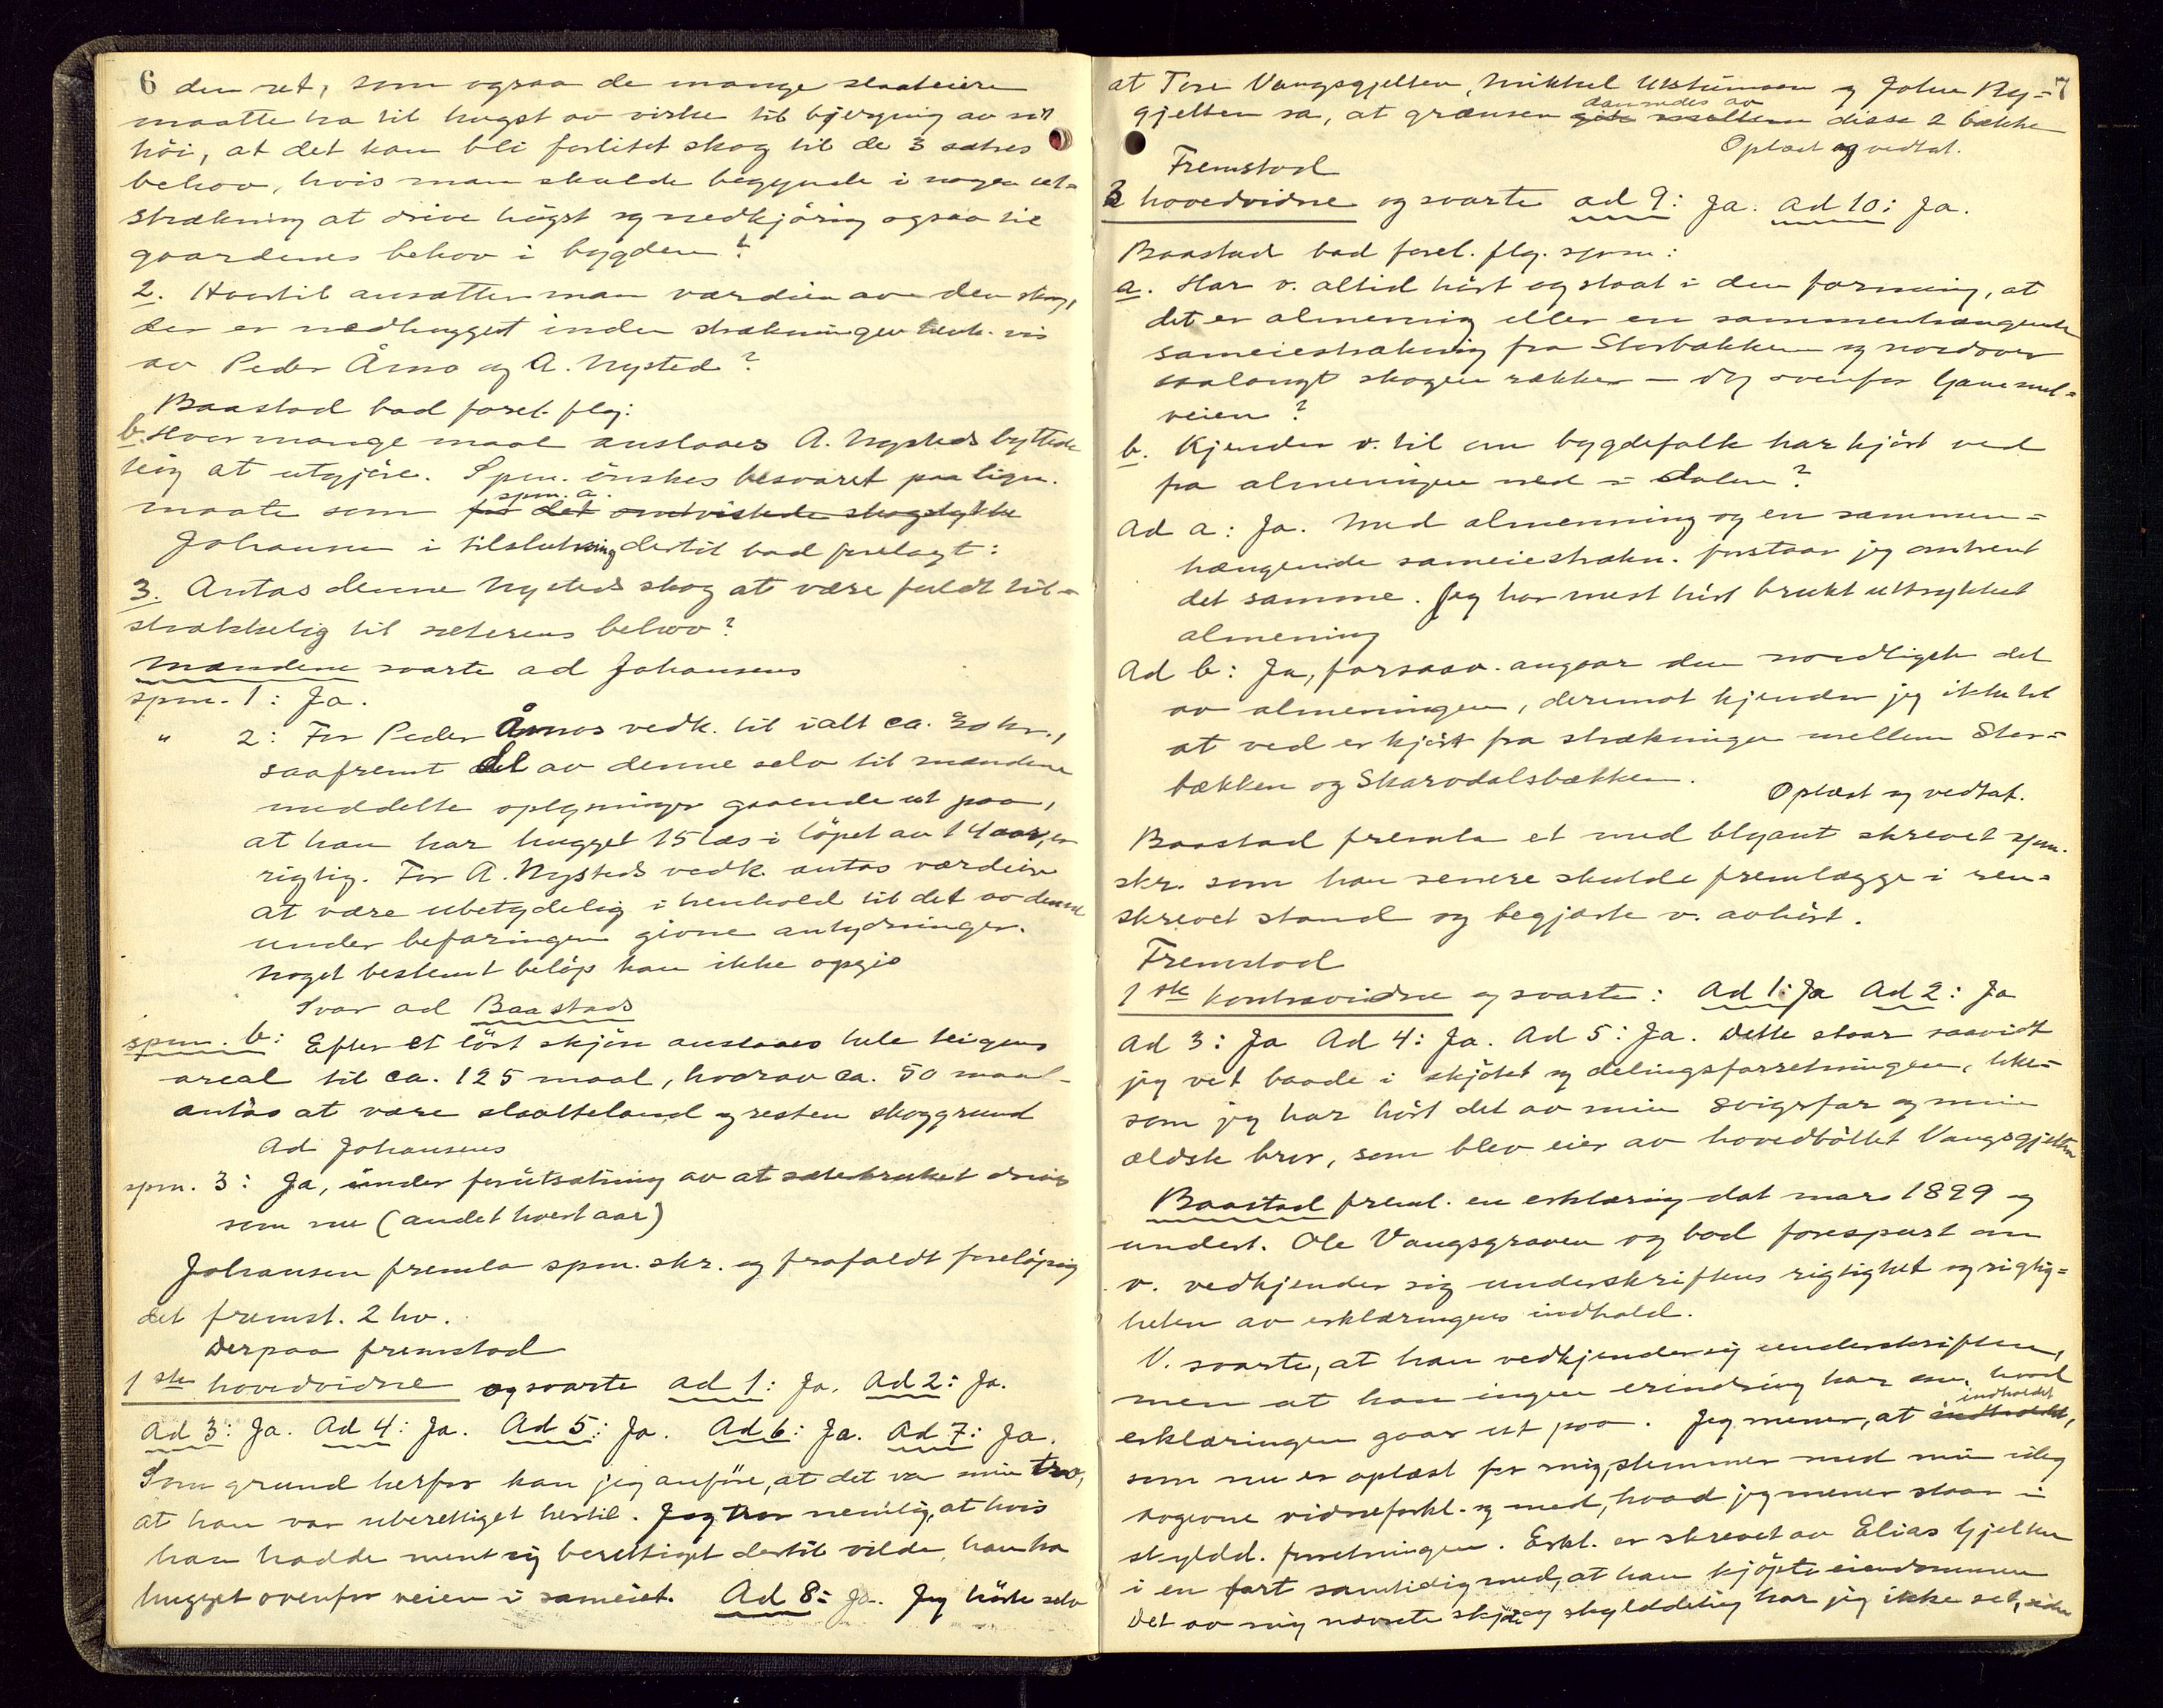 6 den ret, som ogsaa de mange slaateiere
maatte ha til hugst av virke til bjergning av sit
höi, at det kan bli forlitet skog til de 3 sætres
behov, hvis man skulde begynde i nogen ut=
strækning at drive hugst og nedkjöring ogsaa til
gaardenes behov i bygden?
2. Hvortil ansætter man værdien av den skog,
der er nedhugget inden strækningen henh.vis
av Peder Åmo og A. Nysted?
Baastad bad forel. flg:
b. Hvor mange maal anslaaes A. Nysteds byttede
teig at utgjöre. Spm. önskes besvaret paa lign.
spm. a.
maate som for det omtvistede skogstykke
Johansen i tilslutning dertil bad forelagt:
3. Antas denne Nysteds skog at være fuldt til=
strækkelig til sæterens behov?
Mændene svarte ad Johansens
spm. 1: Ja.
" 2: For Peder Åmos vedk. til ialt ca. 30 kr.,
saafremt de av denne selv til mændene
meddelte oplysninger gaaende ut paa,
at han har hugget 15 læs i löpet av 14 aar, er
rigtig. For A. Nysteds vedk. antas værdien
at være ubetydelig i henhold til det av denne
under befaringen givne antydninger.
Noget bestemt belöp kan ikke opgis
Svar ad Baastads
spm. b: Efter et löst skjön anslaaes hele teigens
areal til ca. 125 maal, hvorav ca. 50 maal
antas at være slaatteland og resten skoggrund
Ad Johansens
spm. 3: Ja, under forutsætning av at sæterbruket drives
som nu (andet hvert aar)
Johansen fremla spm. skr. og frafaldt foreløpig
det fremst. 2 hv.
Derpaa fremstod
1ste hovedvidne og svarte ad 1: Ja. Ad 2: Ja.
Ad 3: Ja. Ad 4: Ja. Ad 5: Ja. Ad 6: Ja. Ad 7: Ja.
Som grund herfor kan jeg anföre, at det var min tro,
at han var uberettiget hertil. Jeg tror nemlig, at hvis
han hadde ment sig berettiget dertil vilde han ha
hugget ovenfor veien i sameiet. Ad 8: Ja. Jeg hörte selv
7
at Tore Vangsgjelten, Mikkel og John Ny=
dannedes av
gjelten sa, at grænsen gik mellem disse 2 bække
Oplæst og vedtat.
Fremstod
3 hovedvidne og svarte ad 9: Ja. ad 10: Ja.
Baastad bad forel. flg. spm:
a. Har v. altid hört og staat i den formening, at
det er almenning eller en sammenhængende
sameiestrækning fra Storbækken og nordover
saalangt skogen rækker – dvs ovenfor Gammel=
veien?
b. Kjender v. til om bygdefolk har kjört ved
fra almeningen ned i dalen?
Ad a: Ja. Med almenning og en sammen=
hængende sameiestrækn. forstaar jeg omtrent
det samme. Jeg har mest hört brukt uttrykket
almening
Ad b: Ja, forsaav. angaar den nordligste del
av almeningen, derimot kjender jeg ikke til
at ved er kjört fra strækningen mellem Stor=
bækken og Skarvdalsbækken.
Oplæst og vedtat.
Baastad fremla et med blyant skrevet spm.
skr. som han senere skulde fremlægge i ren=
skrevet stand og begjærte v. avhört.
Fremstod
1ste kontravidne og svarte: Ad 1: Ja Ad 2: Ja
Ad 3: Ja Ad 4: Ja. Ad 5: Ja. Dette staar saavidt
jeg vet baade i skjötet og delingsforretningen, like=
som jeg har hört det av min svigerfar og min
ældste bror, som blev eier av hovedbölet Vangsgjelten
Baastad freml. en erklæring dat mars 1899 og
underst. Ole Vangsgraven og bad forespurt om
v. vedkjender sig underskriftens rigtighet og rigtig=
heten av erklæringens indhold.
V. svarte, at han vedkjender sig underskriften,
men at han ingen erindring har om, hvad
indholdet
erklæringen gaar ut paa. Jeg mener, at indholdet,
som nu er oplæst for mig, stemmer med min idag
avgivne vidneforkl. og med, hvad jeg mener staar i
skyldd. forretningen. Erkl. er skrevet av Elias Gjelten
i en fart samtidig med, at han kjöpte eiendommen
Det av mig nævnte skjöte og skylddeling har jeg ikke set, siden